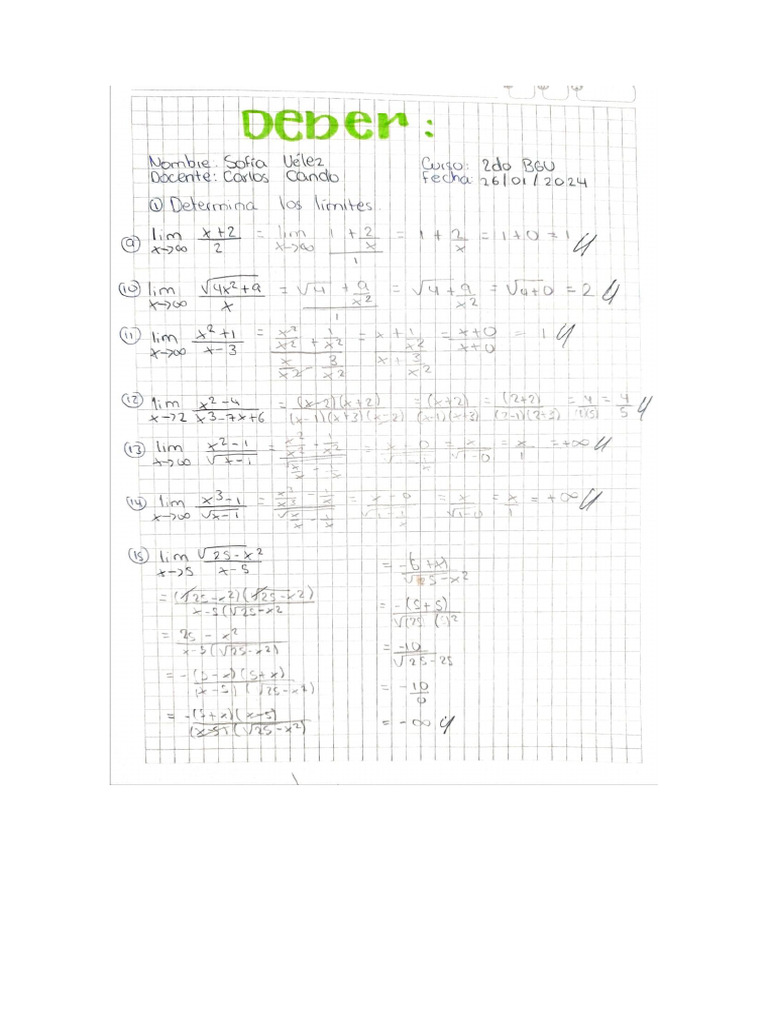 Deber:
Nombre: Sofía Vélez Curso: 2do BGU
Docente: Carlos Cando Fecha: 26/01/2024
① Determina los límites.
⑨ lim x→∞ (x+2)/2 = lim x→∞ (1 + 2/x)/1 = 1 + 2/x = 1+0 = 1 //
⑩ lim x→∞ √(4x²+9)/x = (√4 + 9/x²)/1 = √4 + 9/x² = √4+0 = 2 //
⑪ lim x→∞ (x²+1)/(x-3) = (x²/x² + 1/x²)/(x/x² - 3/x²) = (x + 1/x²)/(x + 3/x²) = (x+0)/(x+0) = 1 //
⑫ lim x→2 (x²-4)/(x³-7x+6) = (x-2)(x+2)/(x-1)(x+3)(x-2) = (x+2)/(x-1)(x+3) = (2+2)/(2-1)(2+3) = 4/1(5) = 4/5 //
⑬ lim x→∞ (x²-1)/√(x-1) = (x + 0) = x/√(1-0) = x/1 = +∞ //
⑭ lim x→∞ (x³-1)/√(x-1) = (x³/x³ - 1/x) = (x - 0)/√(1 - 1/x) = x/√(1-0) = x/1 = +∞ //
⑮ lim x→5 √(25-x²)/(x-5)
= (√25-x²)(√25-x²)/x-5(√25-x²)
= 25 - x²/x-5(√25-x²)
= -(5-x)(5+x)/(x-5)(√25-x²)
= -(5+x)(x-5)/(x-5)(√25-x²)
= /√25-x²
= -(5+5)/√(25
= -10/√25-25
= -10/0
= -∞ //